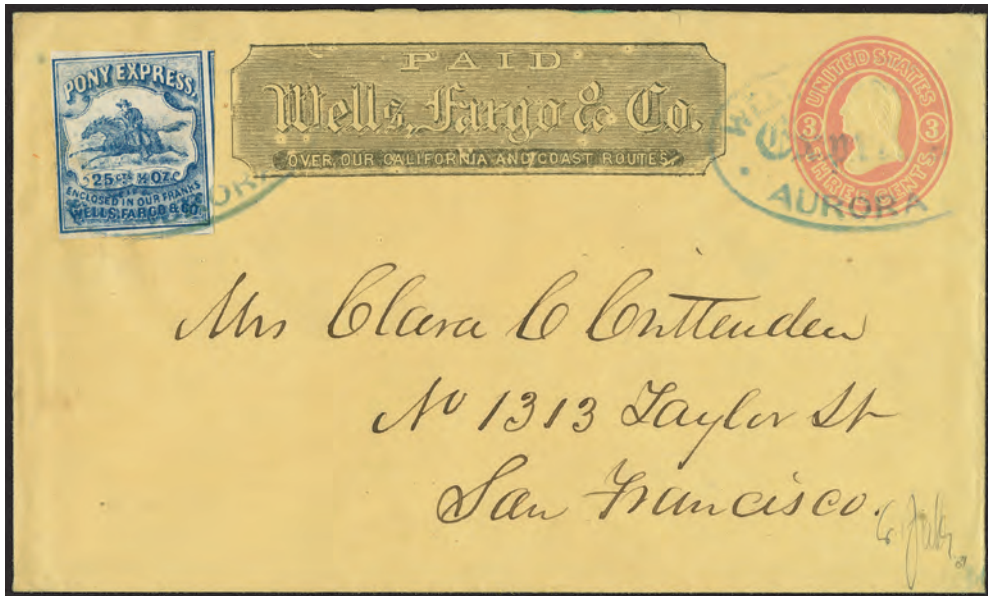 PONY EXPRESS.
25 Cts ½ OZ
ENCLOSED IN OUR FRANKS
WELLS, FARGO & CO.
PAID
Wells, Fargo & Co.
OVER OUR CALIFORNIA AND COAST ROUTES.
UNITED STATES
3 3
THREE CENTS.
AURORA
Mrs Clara C Crittenden
No 1313 Taylor St
San Francisco.